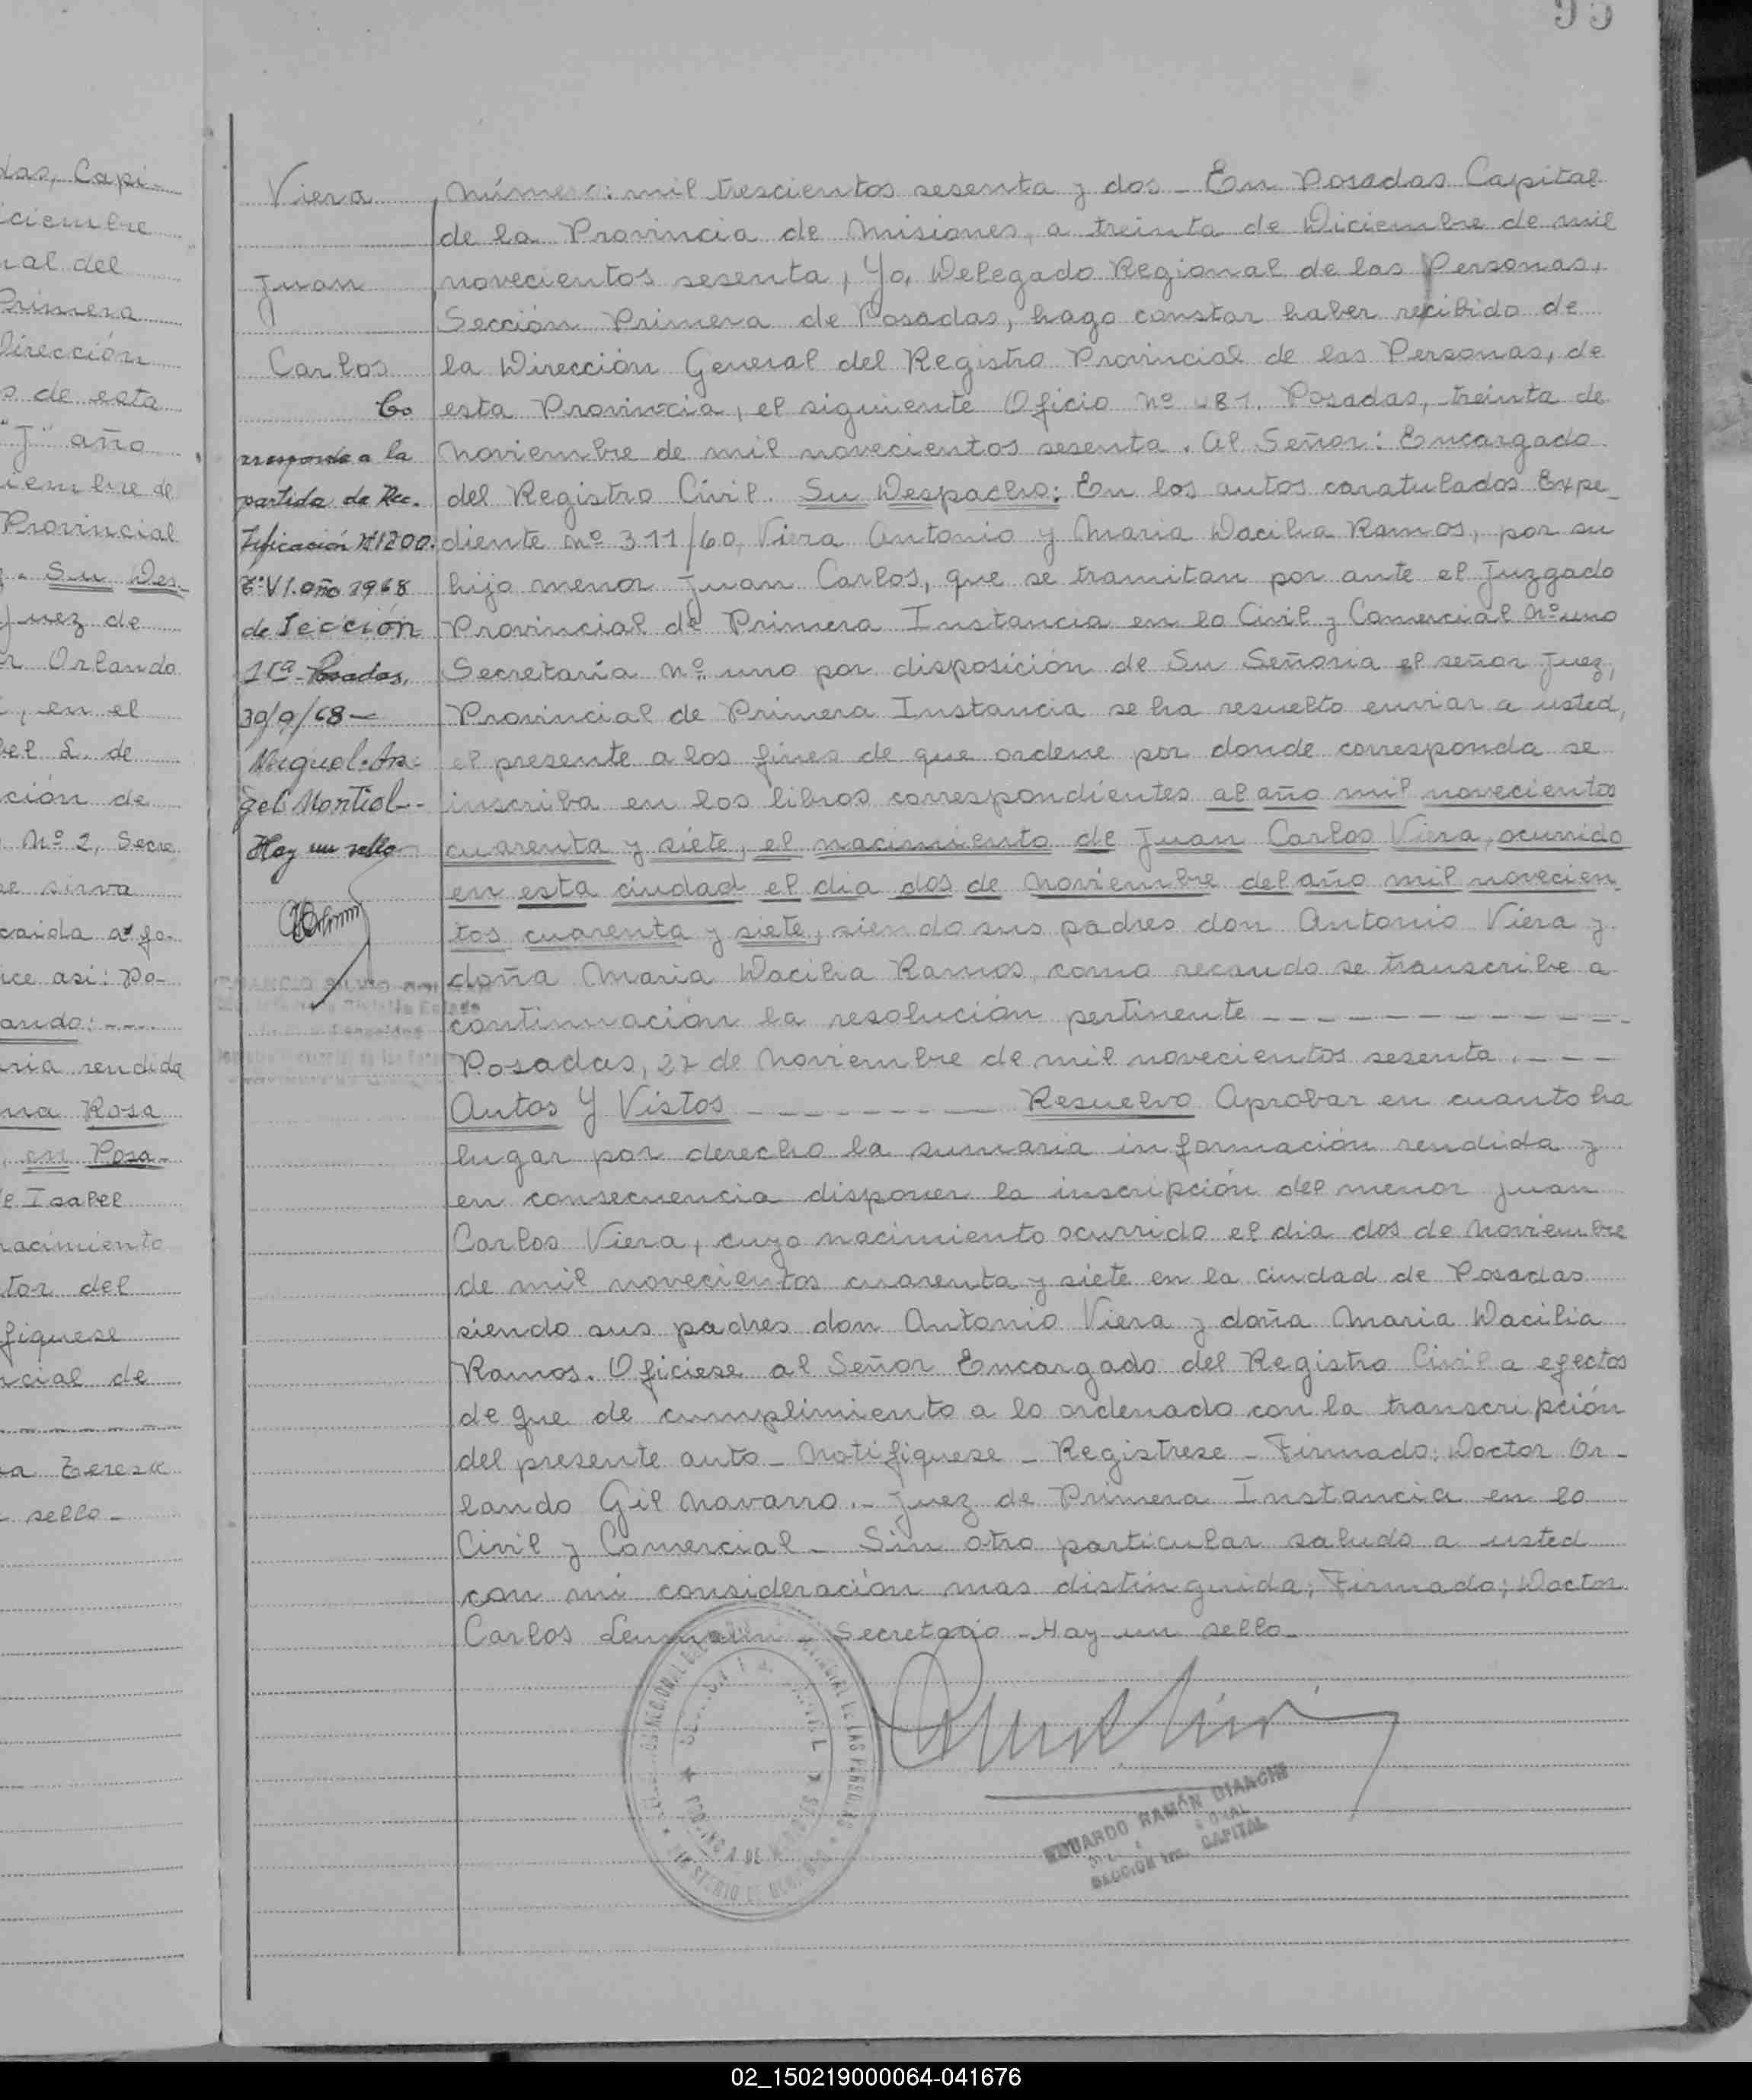 95
das, Capi-
iciembre
nal del
Primera
Dirección
s de esta
"J" año
iembre de
Provincial
. Su Des-
Juez de
r Orlando
, en el
bel L. de
ción de
Nº 2, Secre
se sirva
caida a fo-
ice asi: Po-
ando: ----
ria rendida
ma Rosa
, en Posa-
e Isabel
nacimiento
tor del
fiquese
ncial de
a Teresa
sello-
Viera
Juan
Carlos
Co
rresponde a la
partida de Rec.
tificación Nº1200.
Tº VI. año 1968
de Sección
1ra- Posadas,
30/9/68-
Miguel Án-
gel Montiel-
Hay un sello
Número: mil trescientos sesenta y dos - En Posadas Capital
de la Provincia de Misiones, a treinta de Diciembre de mil
novecientos sesenta, Yo, Delegado Regional de las Personas,
Sección Primera de Posadas, hago constar haber recibido de
la Dirección General del Registro Provincial de las Personas, de
esta Provincia, el siguiente Oficio Nº 481. Posadas, treinta de
Noviembre de mil novecientos sesenta. Al Señor: Encargado
del Registro Civil. Su Despacho: En los autos caratulados Expe-
diente Nº 311/60, Viera Antonio y Maria Dacilia Ramos, por su
hijo menor Juan Carlos, que se tramitan por ante el Juzgado
Provincial de Primera Instancia en lo Civil y Comercial Nº uno
Secretaría Nº uno por disposición de Su Señoria el señor Juez,
Provincial de Primera Instancia se ha resuelto enviar a usted,
el presente a los fines de que ordene por donde corresponda se
inscriba en los libros correspondientes al año mil novecientos
cuarenta y siete, el nacimiento de Juan Carlos Viera, ocurrido
en esta ciudad el dia dos de Noviembre del año mil novecien
tos cuarenta y siete, siendo sus padres don Antonio Viera y
doña Maria Dacilia Ramos, como recaudo se transcribe a
continuación la resolución pertinente -------------
Posadas, 27 de Noviembre de mil novecientos sesenta. ----
Autos Y Vistos --------- Resuelvo Aprobar en cuanto ha
lugar por derecho la sumaria información rendida y
en consecuencia disponer la inscripción del menor Juan
Carlos Viera, cuyo nacimiento ocurrido el dia dos de Noviembre
de mil novecientos cuarenta y siete en la ciudad de Posadas
siendo sus padres don Antonio Viera y doña Maria Dacilia
Ramos. Oficiese al Señor Encargado del Registro Civil a efectos
de que de cumplimiento a lo ordenado con la transcripción
del presente auto - Notifiquese - Registrese - Firmado: Doctor Or-
lando Gil Navarro.- Juez de Primera Instancia en lo
Civil y Comercial - Sin otro particular saludo a usted
con mi consideración mas distinguida; Firmado; Doctor
Carlos - Secretario - Hay un sello-
EDUARDO RAMÓN BIANCHI
SECCION 1ra. CAPITAL
02_150219000064-041676